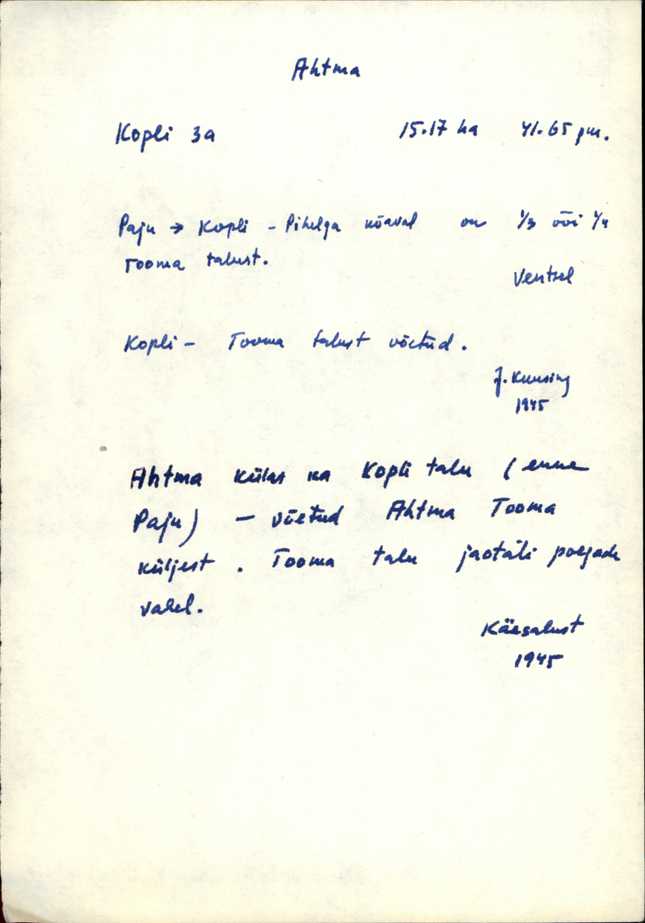 Ahtma
Kopli 3a 15.17 ha 41.65 pm.
Paju → Kopli - Pihelga kõrval on 1/3 või 1/4
Tooma talust.
Ventsel
Kopli - Tooma talust võetud.
J. Kuusing
1945
Ahtma külas ka Kopli talu (enne
Paju) — võetud Ahtma Tooma
küljest. Tooma talu jaotati poegade
vahel.
Käesalust
1945